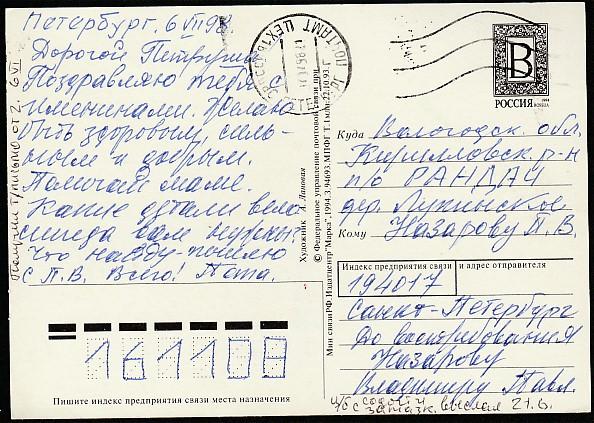 Петербург. 6 VII 98
Дорогой Петруша!
Поздравляю тебя с
именинами. Желаю
быть здоровым, силь-
ным и добрым.
Помогай маме.
Какие детали вело-
сипеда вам нужны?
Что найду - пошлю
с П.В. Всего! Папа.
Получил т/письмо от 2.6 VI
ПОЧТАМТ ЦЕХ
Художник А. Лановая
© Федеральное управление почтовой связи при
Мин связи РФ. Издатцентр "Марка". 1994. З. 94693. МПФГ Т. 1 млн. 22.10.93 г.
В
РОССИЯ 1994
Куда Вологодск. обл,
Кирилловск. р-н
п/о РАНДАЧ
дер. Лукинское
Кому Назарову П. В.
Индекс предприятия связи и адрес отправителя
194017
Санкт-Петербург
До востребования
Назарову
Владимиру Павл.
161108
Пишите индекс предприятия связи места назначения
выслал 21.6.